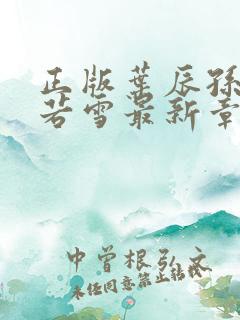 正版叶辰孙
若雪最新章
中曾根弘文
未经同意禁止转载